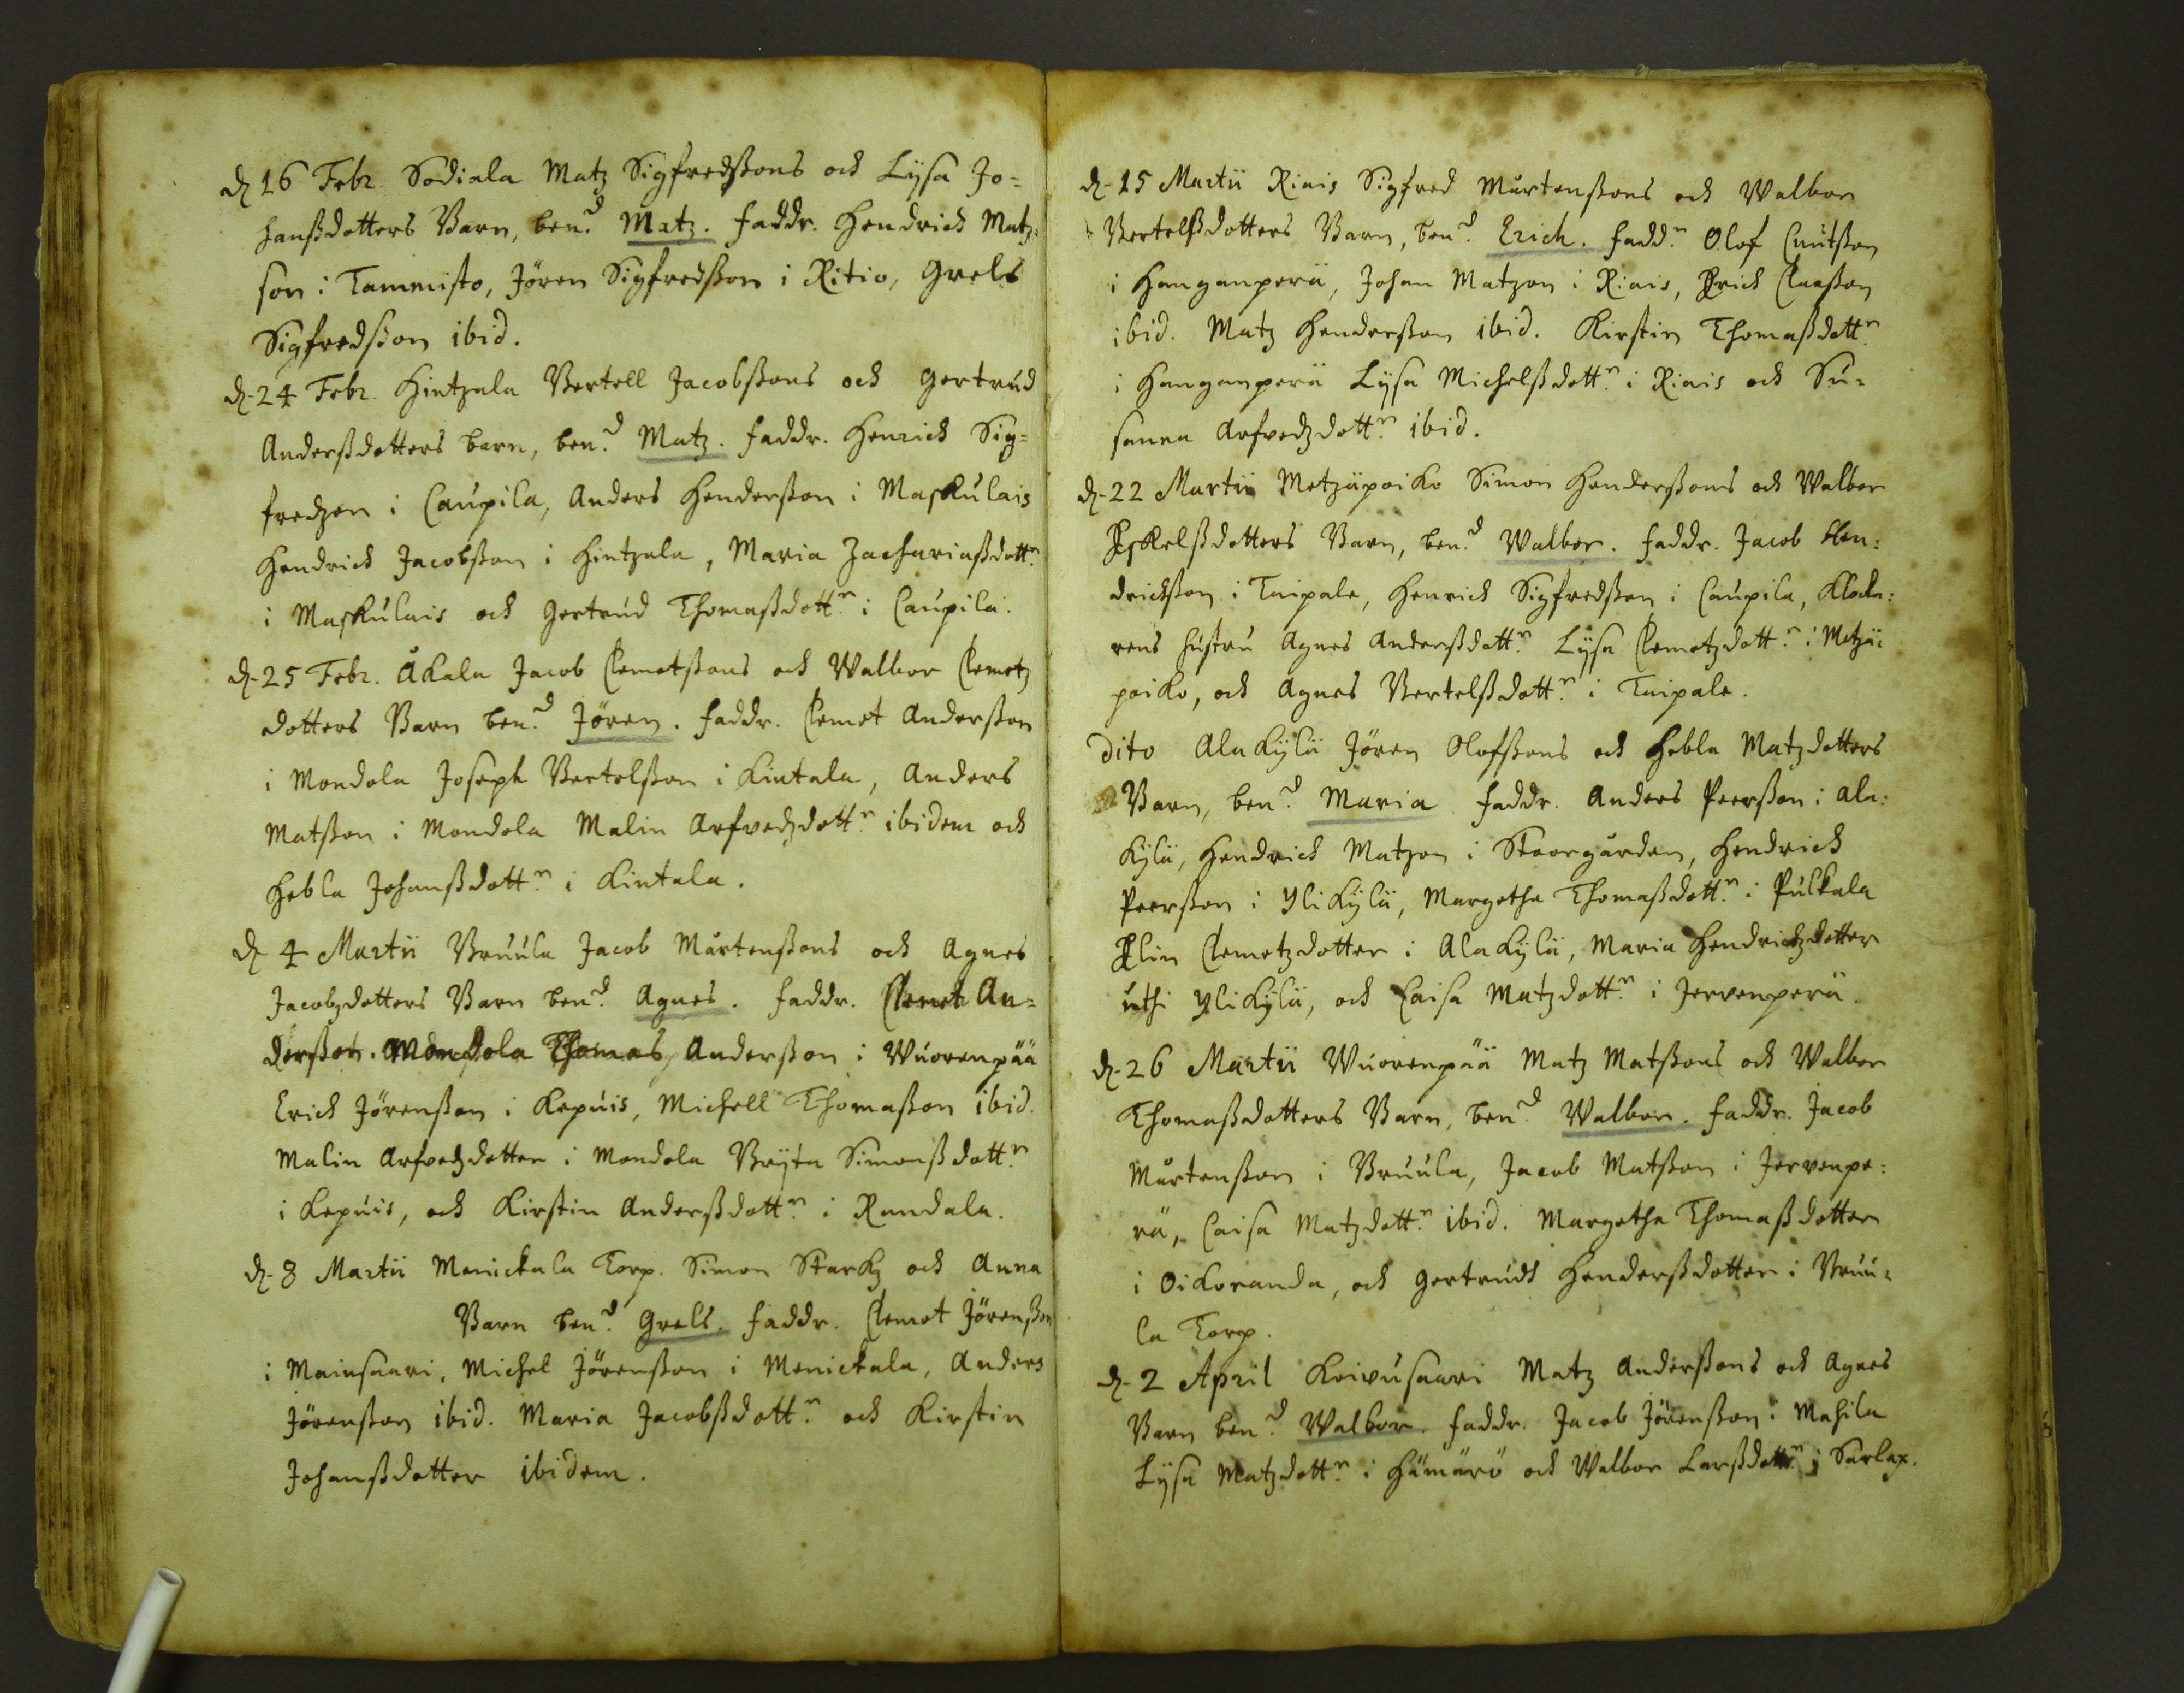 d. 16 Febr. Sodiala Matz Sigfredßons och Lysa Jo=
hanßdotters Barn, ben.d Matz. faddr. Hendrich Matz=
son i Tammisto, Jören Sigfredßon i Ritio, Grels
Sigfredßon ibid.
d. 24 Febr. Hintzala Bertell Jacobßons och Gertrud
Anderßdotters barn, ben.d Matz. faddr. Henrich Sig=
fredzon i Caupila, Anders Henderßon i Maskulais
Hendrich Jacobßon i Hintzala, Maria Zachariaßdott.r
i Maskulais och Gertrud Thomaßdott.r i Caupila.
d. 25 Febr. Åkala Jacob Clemetßons och Walbor Clemetz
dotters Barn ben.d Jören. faddr. Clemet Anderßon
i Mondola Joseph Bertelßon i Kintala, Anders
Matßon i Mondola Malin Arfvedzdott.r ibidem och
Hebla Johanßdott.r i Kintala.
d. 4 Martii Bruula Jacob Mårtenßons och Agnes
Jacobzdotters Barn ben.d Agnes. faddr. Clemet An=
derßon. Mondola Thomas Anderßon i Wuorenpää
Erich Jörenßon i Kepuis, Michell Thomaßon ibid.
Malin Arfvedzdotter i Mondola Bryta Simonßdott.r
i Kepuis, och Kirstin Anderßdott.r i Randala.
d. 8 Martii Menickala Torp. Simon Starkz och Anna
Barn ben.d Grels. faddr. Clemet Jörenßon
i Mainsaari, Michel Jörenßon i Menickala, Anders
Jörenßon ibid. Maria Jacobßdott.r och Kirstin
Johanßdotter ibidem.
d. 15 Martii Riais Sigfred Mårtenßons och Walbor
Bertelßdotters Barn, ben.d Erich. fadd.r Olof Cnutßon
i Hanganperä, Johan Matzon i Riais, Erich Claaßon
ibid. Matz Henderßon ibid. Kirstin Thomaßdott.r
i Hanganperä Lysa Michelßdott.r i Riais och Su=
sanna Arfvedzdott.r ibid.
d. 22 Martii Metzäpoiko Simon Henderßons och Walbor
Eskelßdotters Barn, ben.d Walbor. faddr. Jacob Hen=
drichßon i Taipale, Henrich Sigfredßon i Caupila, Klocka=
rens hustru Agnes Anderßdott.r Lysa Clemetzdott.r i Metzä=
poiko, och Agnes Bertelßdott.r i Taipale.
Dito Alakylä Jören Olofßons och Hebla Matzdotters
Barn, ben.d Maria faddr. Anders Peerßon i Ala=
kylä, Hendrich Matzon i Storgården, Hendrich
Peerßon i Ylikylä, Margetha Thomaßdott.r i Pulkala
Elin Clemetzdotter i Alakylä, Maria Hendrichzdotter
uthi Ylikylä, och Caisa Matzdott.r i Jervenperä.
d. 26 Martii Wuorenpää Matz Matßons och Walbor
Thomaßdotters Barn, ben.d Walbor. faddr. Jacob
Mårtenßon i Bruula, Jacob Matßon i Jervenpe=
rä, Caisa Matzdott.r ibid. Margetha Thomaßdotter
i Oikoranda, och Gertrudt Henderßdotter i Bruu=
la Torp.
d. 2 April Koivusaari Matz Anderßons och Agnes
Barn ben.d Walbor. faddr. Jacob Jörenßon i Mahila
Lysa Matzdott.r i Hämärö och Walbor Larßdott.r i Sarlax.